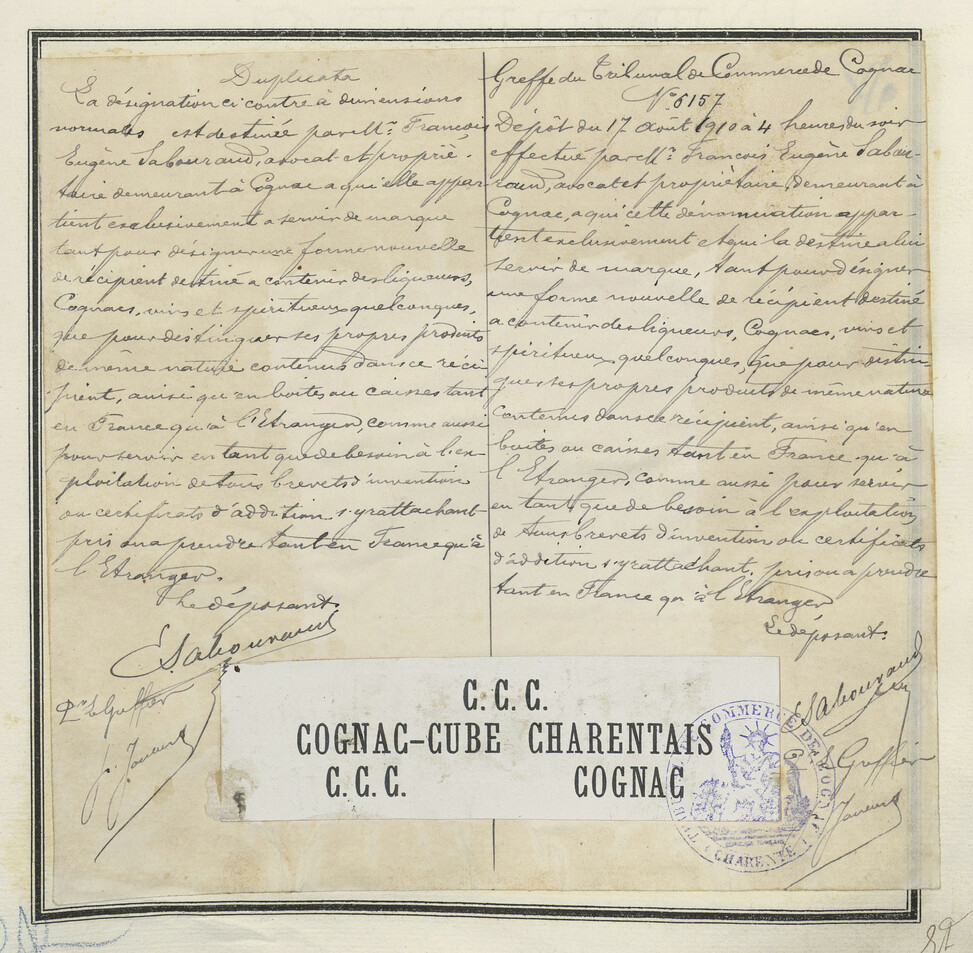 Duplicata
La désignation ci contre à dimensions
normales est destinée par Mr. François
Eugène Sabouraud, avocat et proprié-
taire demeurant à Cognac a qui elle appar-
tient exclusivement a servir de marque
tant pour désigner une forme nouvelle
de récipient destiné a contenir des liqueurs,
Cognacs, vins et spiritueux quelconques,
que pour distinguer ses propres produits
de même nature contenus dans ce réci-
pient, ainsi qu'en boîtes ou caisses tant
en France qu'à l'Etranger, comme aussi
pour servir en tant que de besoin à l'ex-
ploitation de tous brevets d'invention
ou certificats d'addition s'y rattachant
pris ou a prendre tant en France qu'à
l'Etranger.
Le déposant.
E. Sabouraud
Pr. Le Greffier
Greffe du Tribunal de Commerce de Cognac
N° 5157
Dépôt du 17 Août 1910 à 4 heures du soir
effectué par Mr. François Eugène Sabou-
raud, avocat et propriétaire, demeurant à
Cognac, a qui cette dénomination appar-
tient exclusivement et qui la destine a lui
servir de marque, tant pour désigner
une forme nouvelle de récipient destiné
a contenir des liqueurs, Cognacs, vins et
spiritueux quelconques, que pour distin-
guer ses propres produits de même nature
contenus dans ce récipient, ainsi qu'en
boîtes ou caisses tant en France qu'à
l'Etranger, comme aussi pour servir
en tant que de besoin à l'exploitation
de tous brevets d'invention ou certificats
d'addition s'y rattachant. pris ou a prendre
tant en France qu'à l'Etranger
Le déposant.
E. Sabouraud
Le Greffier
C. C. C.
COGNAC-CUBE CHARENTAIS
C. C. C. COGNAC
TRIBUNAL DE COMMERCE DE COGNAC
(CHARENTE)